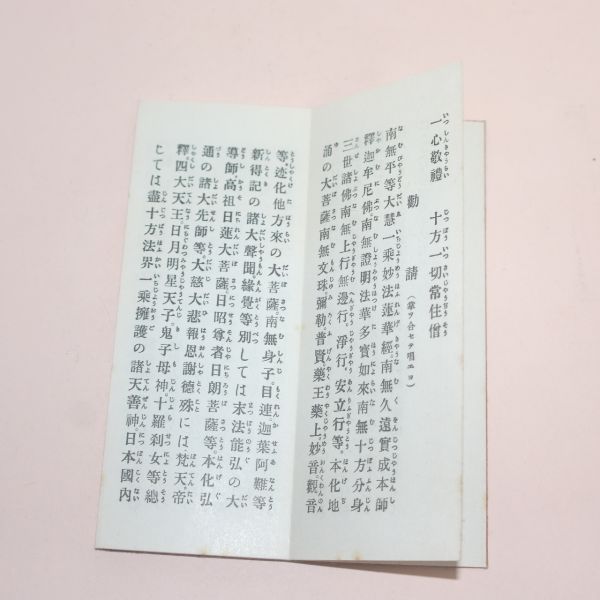 一心敬禮 十方一切常住僧
勸請（掌ヲ合セテ唱エヨ）
南無平等大慧一乗妙法蓮華經。南無久遠實成本師
釋迦牟尼佛南無證明法華多寳如來南無十方分身
三世諸佛南無上行無邊行。淨行。安立行等。本化地
涌の大菩薩南無文珠彌勒普賢藥王藥上。妙音觀音
等迹化他方來の大菩薩。南無身子。目連迦葉阿難等
新得記の諸大聲聞緣覺等別しては末法能弘の大
導師高祖日蓮大菩薩日昭尊者日朗菩薩等。本化弘
通の諸大先師等。大慈大悲報恩謝德殊には梵天。帝
釋四大天王日月明星天子鬼子母神。十羅刹女等總
しては盡十方法界一乗擁護の諸天善神。日本國內